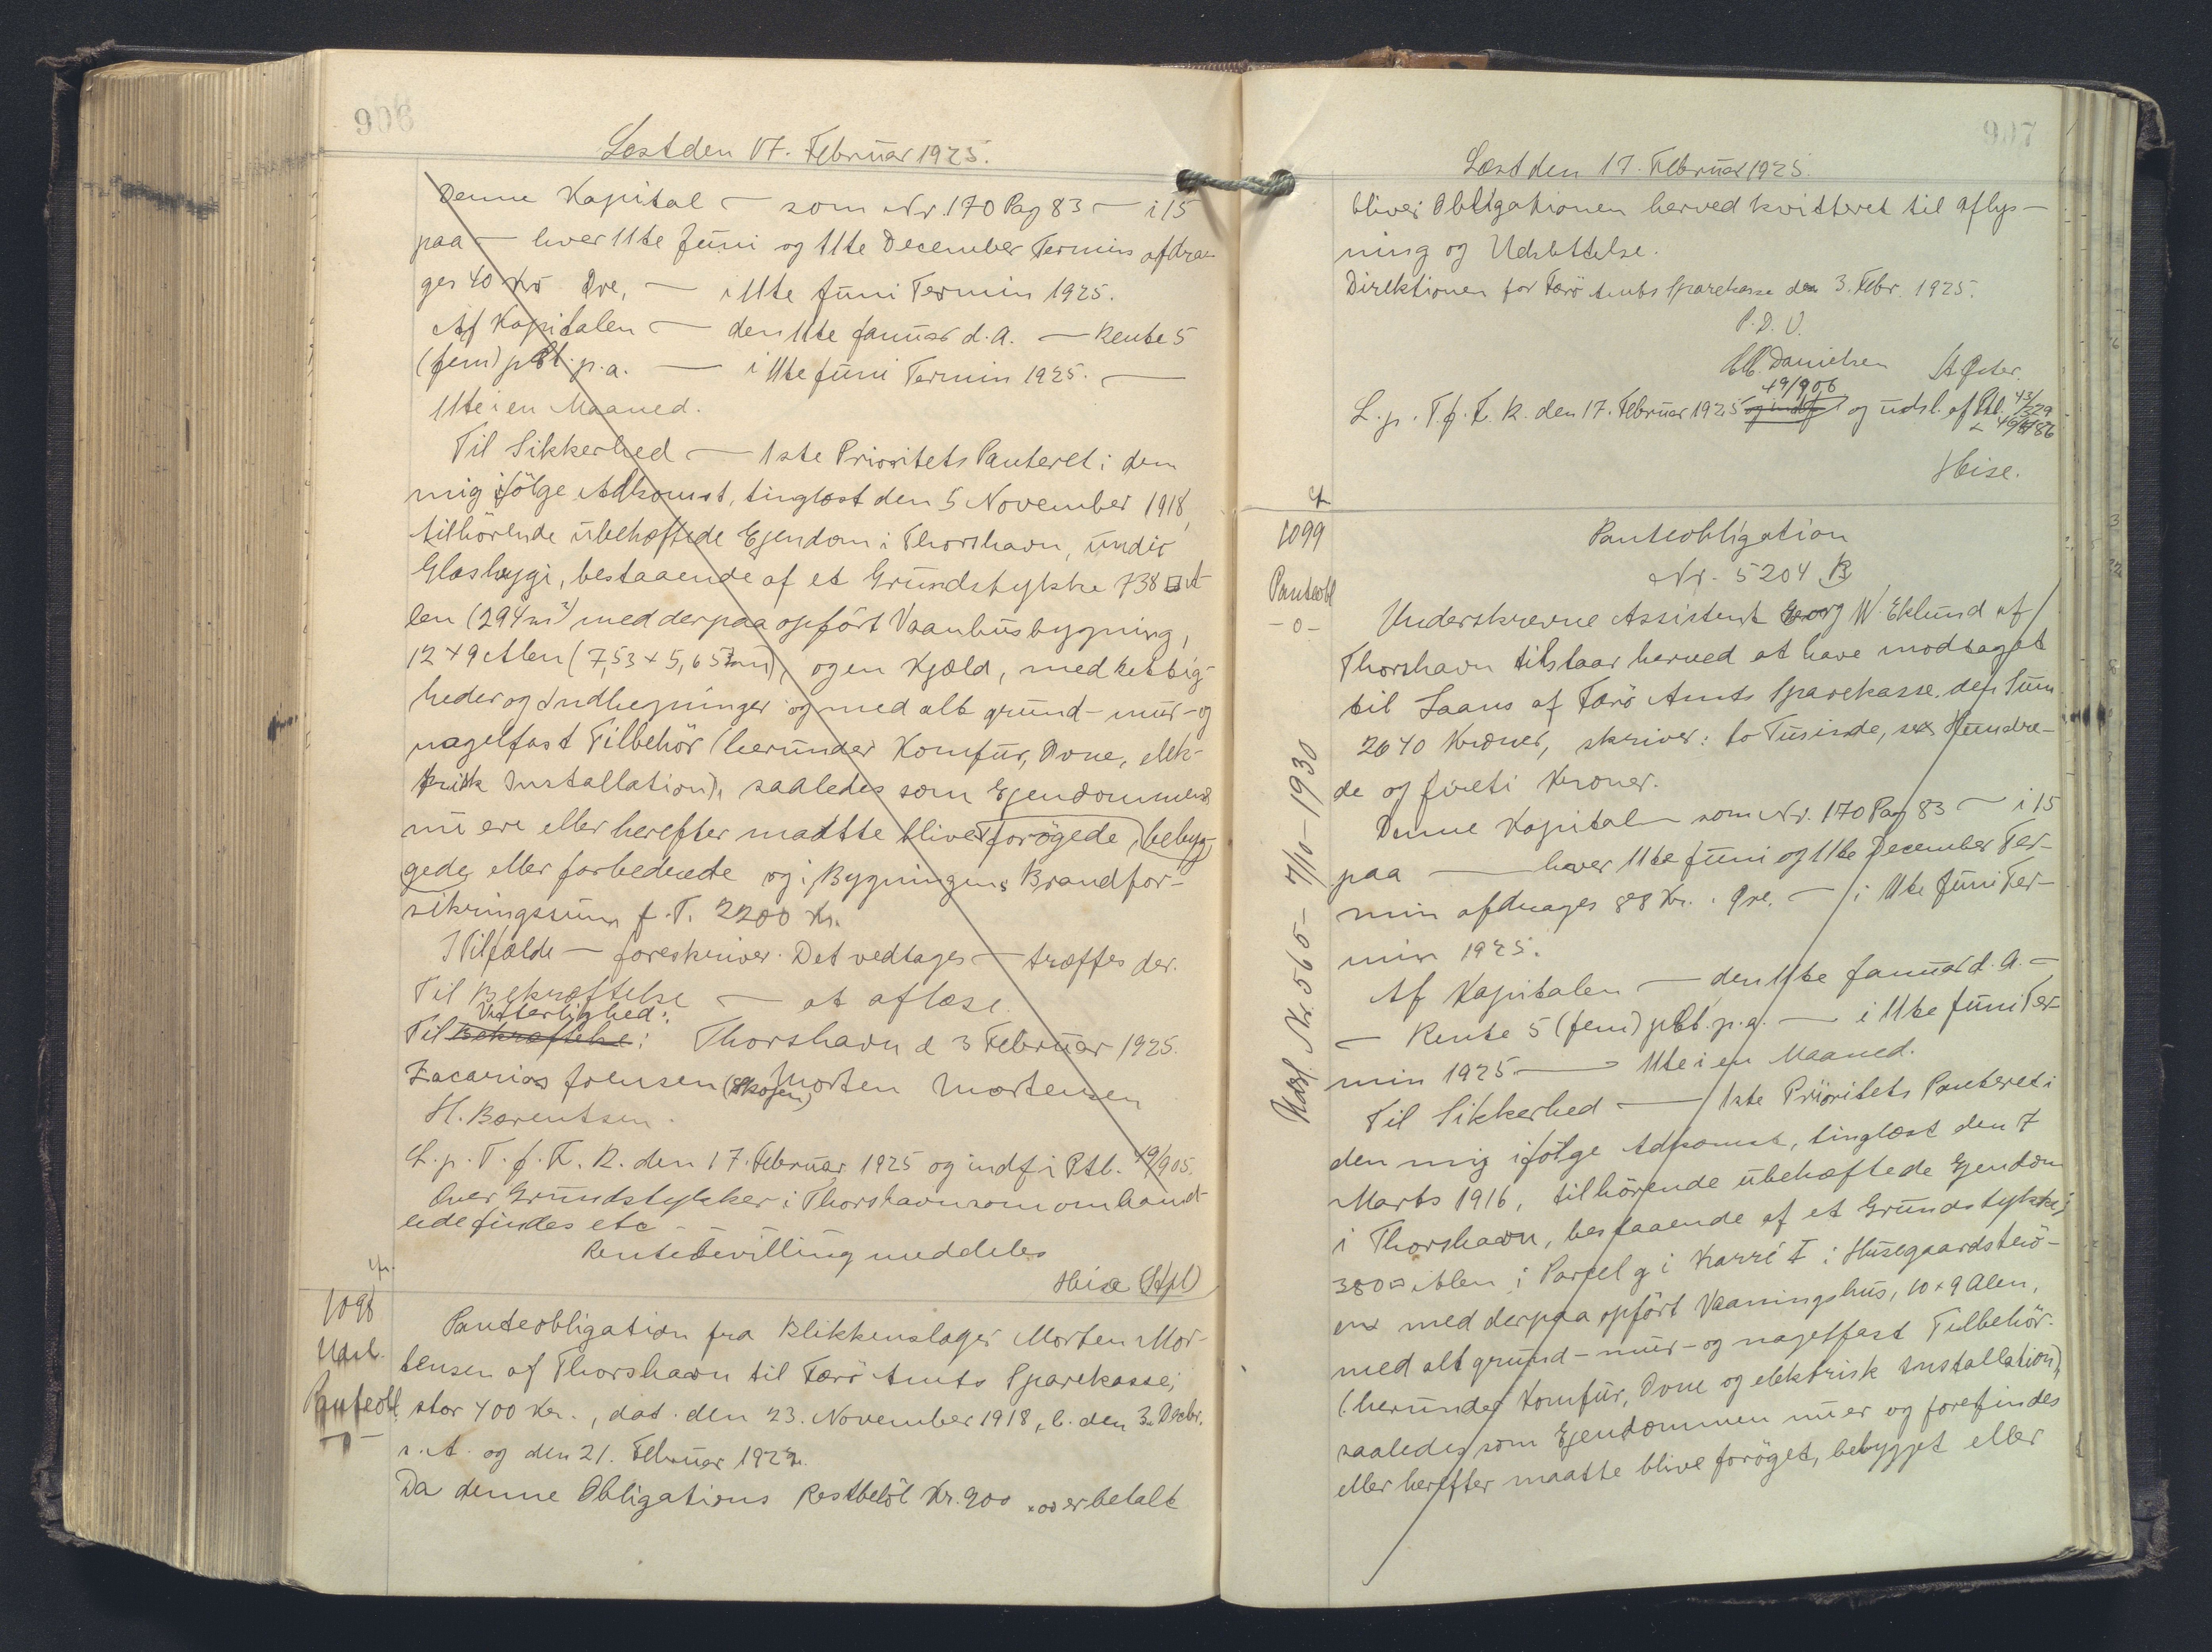 906
Læst den 17. Februar 1925.
Denne Kapital — som Nr. 170 Pag 83 — i 15
paa — hver 11te Juni og 11te December Termin afdra-
ges 40 Kr Øre, — i 11te Juni Termin 1925.
Af Kapitalen — den 11te Januar d. A. — Rente 5
(fem) pCt. p.a. — i 11te Juni Termin 1925. —
11te i en Maaned.
Til Sikkerhed — 1ste Prioritets Panteret i dem
mig ifölge Adkomst, tinglæst den 5 November 1918,
tilhörende ubehæftede Ejendom i Thorshavn, under
Glasheygi, bestaaende af et Grundstykke 738 □ A-
len (294 m²) med derpaa opfört Vaanhusbygning,
12 x 9 Alen (7,53 x 5,65 m), og en Kjæld, med Rettig-
heder og Indhegninger og med alt grund- mur- og
nagelfast Tilbehör (herunder Komfur, Ovne, elek-
trisk Installation), saaledes som Ejendommene
nu ere eller herefter maatte blive forögede, bebyg-
gede eller forbedrede og i Bygningens Brandfor-
sikringssum f. T. 2200 Kr.
I Tilfælde — foreskriver. Det vedtages — træffes der.
Til Bekræftelse — at aflæse.
Vitterlighed:
Til Bekræftelse: Thorshavn d 3 Februar 1925.
Zacarias Joensen (Skogen) Morten Mortensen
H. Barentsen.
L. p. T. f. F. R. den 17. Februar 1925 og indf. i Ptb. 49/905.
Over Grundstykker i Thorshavn som omhand-
lede findes etc - - -
Rentebevilling meddeles
Heise (Stpl)
cfr.
1098
Udsl.
Panteobl
-o-
Panteobligation fra Blikkenslager Morten Mor-
tensen af Thorshavn til Færö Amts Sparekasse,
stor 400 Kr., dat. den 23. November 1918, l. den 3. Decbr.
s. A. og den 21. Februar 1922.
Da denne Obligations Restbelöb Kr. 200 .00 er betalt
907
Læst den 17. Februar 1925.
bliver Obligationen herved kvitteret til Aflys-
ning og Udslettelse.
Direktionen for Færö Amts Sparekasse den 3. Febr. 1925.
P. D. V.
Danielsen
49/906
L. p. T. f. F. R. den 17. Februar 1925 og indf og udsl. af Ptb. 43/329
Heise.
cfr
1099
Panteobl
-o-
Udsl. Nr. 565 - 7/10-1930
Panteobligation
Nr. 5204 B
Underskrevne Assistent Georg W. Eklund af
Thorshavn tilstaar herved at have modtaget
til Laans af Færö Amts Sparekasse den Sum
2640 Kroner, skriver: to Tusinde, sex Hundre-
de og fireti Kroner.
Denne Kapital som Nr. 170 Pag 83 — i 15
paa — hver 11te Juni og 11te December Ter-
min afdrages 88 Kr. . Øre. — i 11te Juni Ter-
min 1925.
Af Kapitalen — den 11te Januar d. A. —
— Rente 5 (fem) pCt. p. a. — i 11te Juni Ter-
min 1925 — 11te i en Maaned.
Til Sikkerhed — 1ste Prioritets Panteret i
den mig ifölge Adkomst, tinglæst den 7
Marts 1916, tilhörende ubehæftede Ejendom
i Thorshavn, bestaaende af et Grundstykke,
380 □ Alen i Parcel g i Karré I i Husegaardsträ-
en med derpaa opfört Vaaningshus, 10 x 9 Alen,
med alt grund- mur- og nagelfast Tilbehör.
(herunder Komfur, Ovne og elektrisk Installation),
saaledes som Ejendommen nu er og forefindes
eller herefter maatte blive foröget, bebygget eller